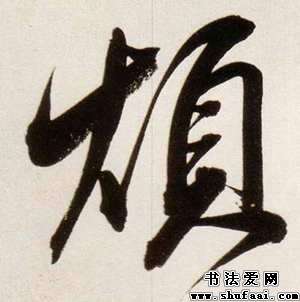 煩
书法爱网
www.shufaai.com